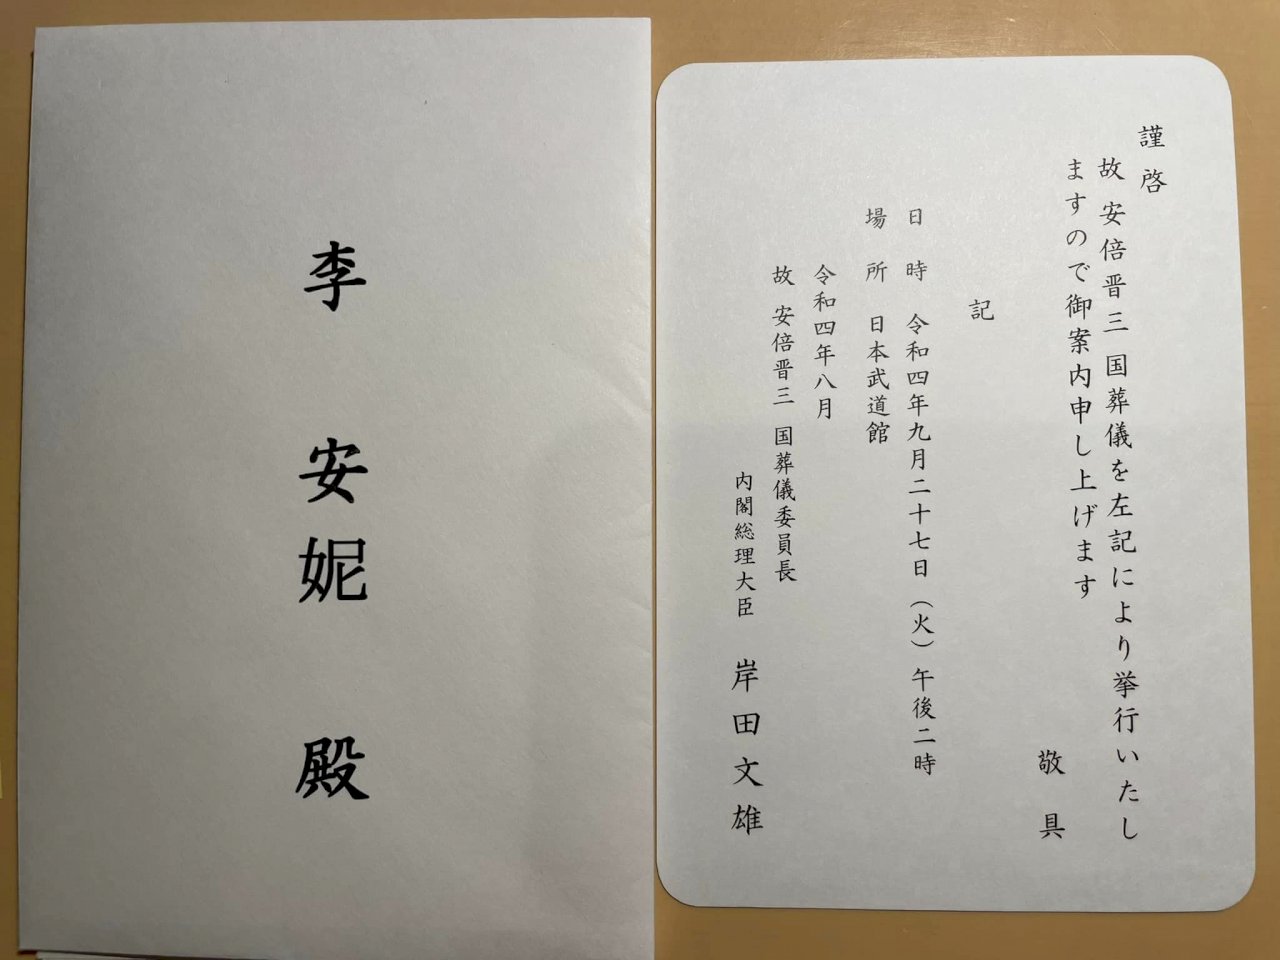 李 安妮 殿
謹啓
故 安倍晋三 国葬儀を左記により挙行いたし
ますので御案内申し上げます
敬具
記
日時 令和四年九月二十七日（火）午後二時
場所 日本武道館
令和四年八月
故 安倍晋三 国葬儀委員長
内閣総理大臣 岸田文雄